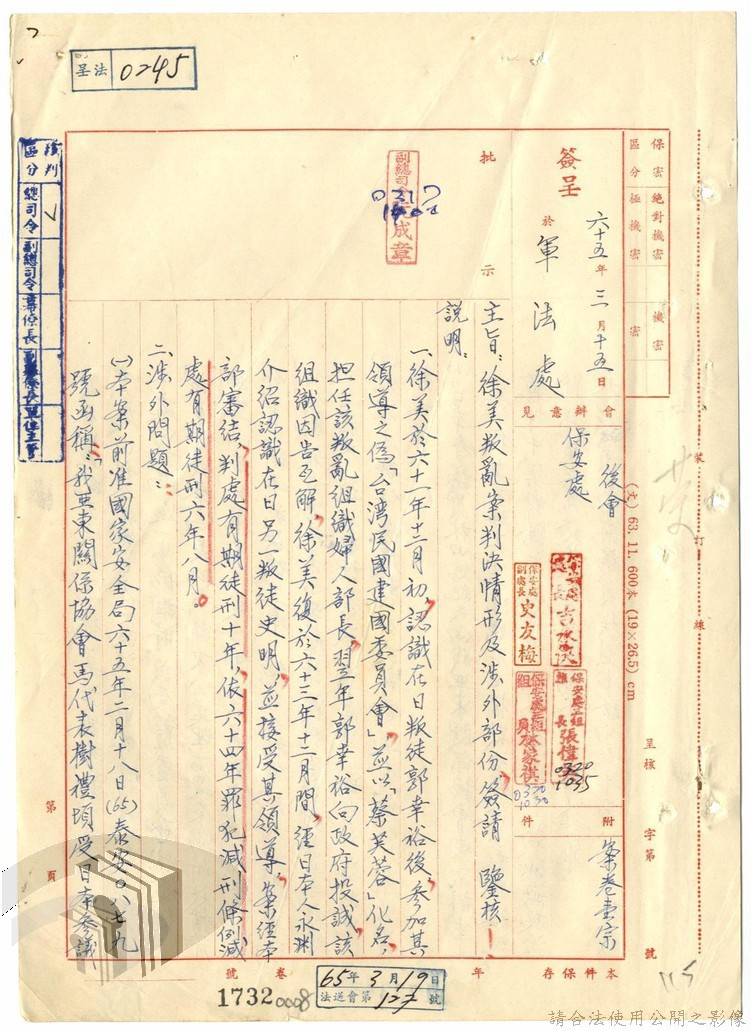 呈法 0245
保密區分 絕對機密 極機密 機密 密
裝訂線
(文) 63. 11. 600本 (19×26.5) cm
呈核 字第 號
簽呈
六十五年三月十五日
於 軍法處
會辦意見
後會
保安處
保安處副處長 史友梅
保安處三組組長 張偉
0320
1035
保安處三組組員 林家祺
0320
1030
附件
案卷壹宗
批示
副總司令 成章
主旨：徐美叛亂案判決情形及涉外部份，簽請 鑒核
說明：
一、徐美於六十一年十二月初，認識在日叛徒郭幸裕後，參加其
領導之偽「台湾民國建國委員會」，並以「蔡芙蓉」化名，
担任該叛亂組織婦人部長，翌年郭幸裕向政府投誠，該
組織因告瓦解，徐美復於六十三年十二月間，經日本人永渕
介紹認識在日另一叛徒史明，並接受其領導，案經本
部審結，判處有期徒刑十年，依六十四年罪犯減刑條例減
處有期徒刑六年八月。
二、涉外問題：
(一)本案前准國家安全局六十五年二月十八日(65)泰安〇八七九
號函稱：「我亞東關係協會馬代表樹禮頃受日本參議
核判區分 總司令 副總司令 參謀長 副參謀長 單位主管
第 頁
本件保存 年
卷號
65年3月19日
法送會第127號
1732 0008
115
請合法使用公開之影像